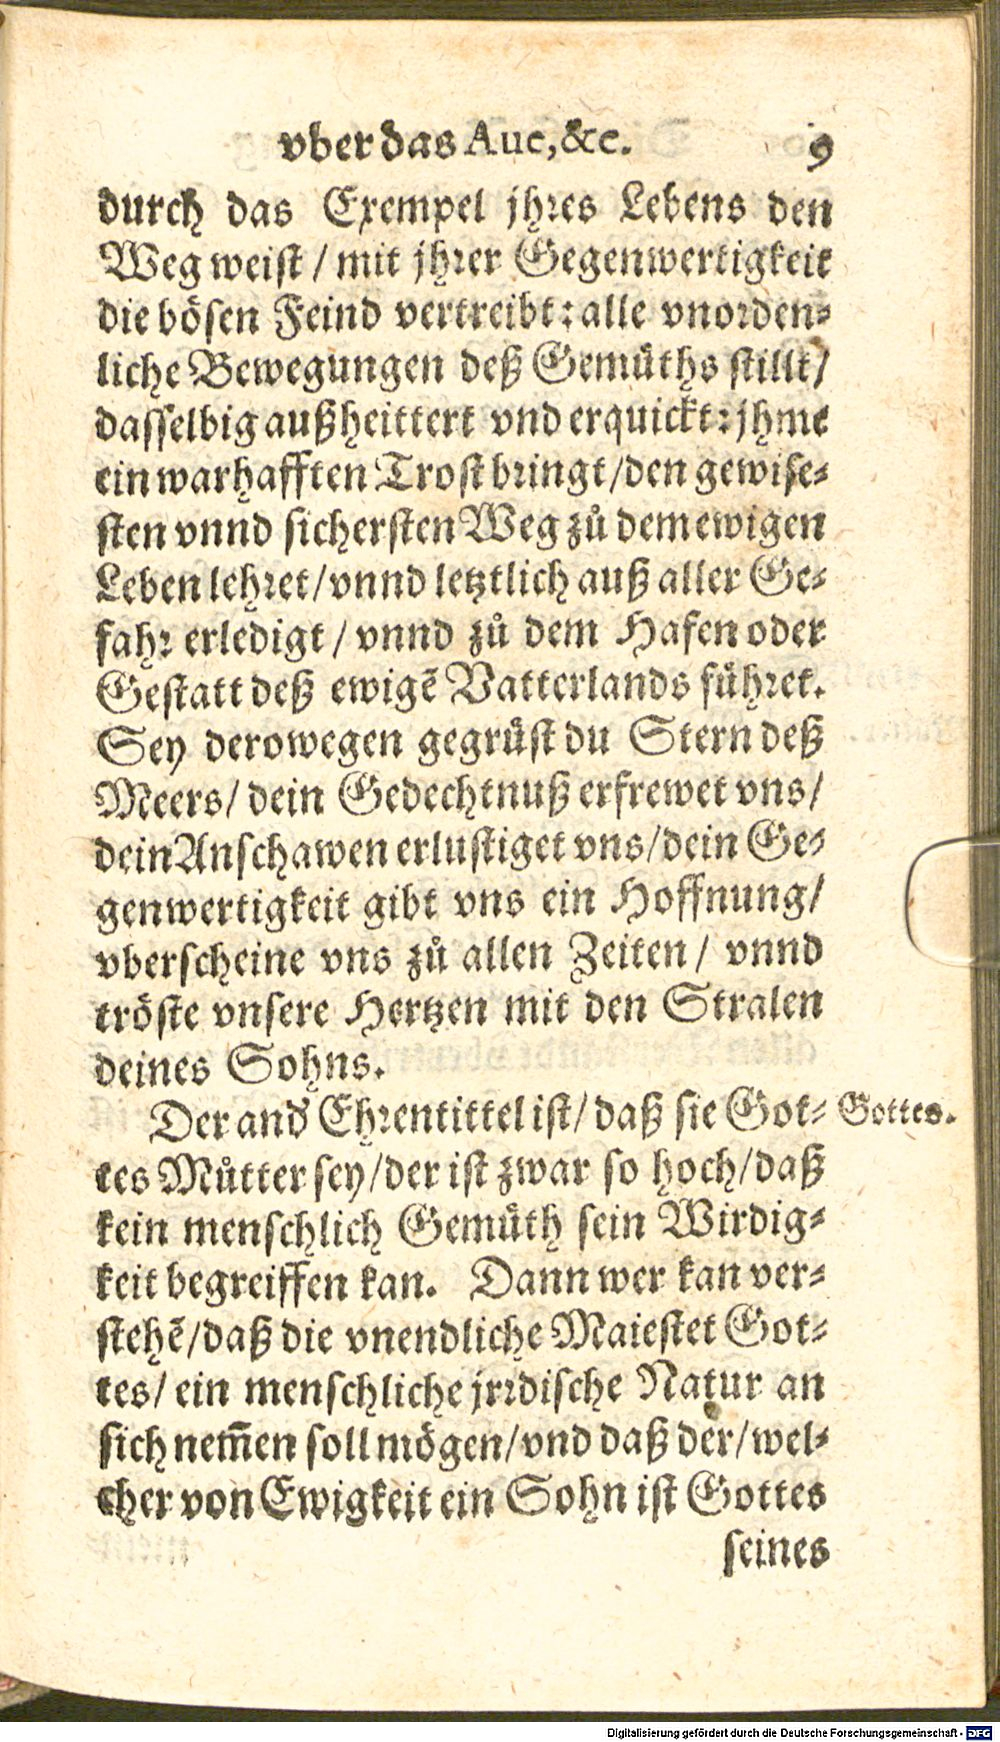 vber das Aue, &c. 9
durch das Exempel jhres Lebens den
Weg weist / mit jhrer Gegenwertigkeit
die bösen Feind vertreibt: alle vnorden-
liche Bewegungen deß Gemüths stillt /
dasselbig außheittert vnd erquickt: jhme
ein warhafften Trost bringt / den gewise-
sten vnnd sichersten Weg zů dem ewigen
Leben lehret / vnnd letztlich auß aller Ge-
fahr erledigt / vnnd zů dem Hafen oder
Gestatt deß ewigẽ Vatterlands führet.
Sey derowegen gegrüst du Stern deß
Meers / dein Gedechtnuß erfrewet vns /
dein Anschawen erlustiget vns / dein Ge-
genwertigkeit gibt vns ein Hoffnung /
vberscheine vns zů allen Zeiten / vnnd
tröste vnsere Hertzen mit den Stralen
deines Sohns.
Der and' Ehrentittel ist / daß sie Got-
Gottes.
tes Můtter sey / der ist zwar so hoch / daß
kein menschlich Gemüth sein Wirdig-
keit begreiffen kan. Dann wer kan ver-
stehẽ / daß die vnendliche Maiestet Got-
tes / ein menschliche jrrdische Natur an
sich nem̃en soll mögen / vnd daß der / wel-
cher von Ewigkeit ein Sohn ist Gottes
seines
Digitalisierung gefördert durch die Deutsche Forschungsgemeinschaft - DFG